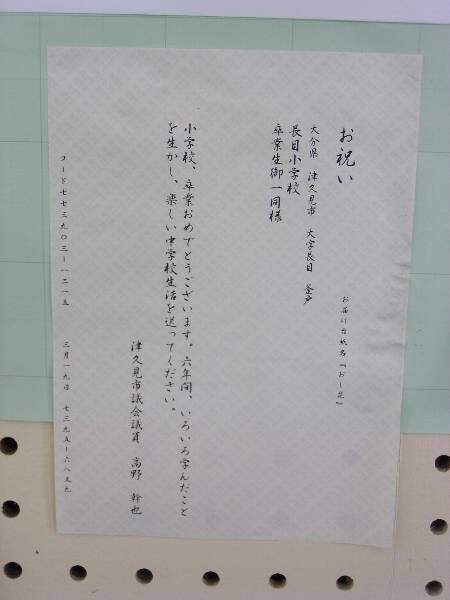 お祝い
お届け台紙名『おし花』
大分県 津久見市 大字長目 釜戸
長目小学校
卒業生御一同様
小学校、卒業おめでとうございます。六年間、いろいろ学んだこと
を生かし、楽しい中学校生活を送ってください。
津久見市議会議員 高野 幹也
三月一九日 七三九五ー六八五九
コード七七三九〇三ー一二一五